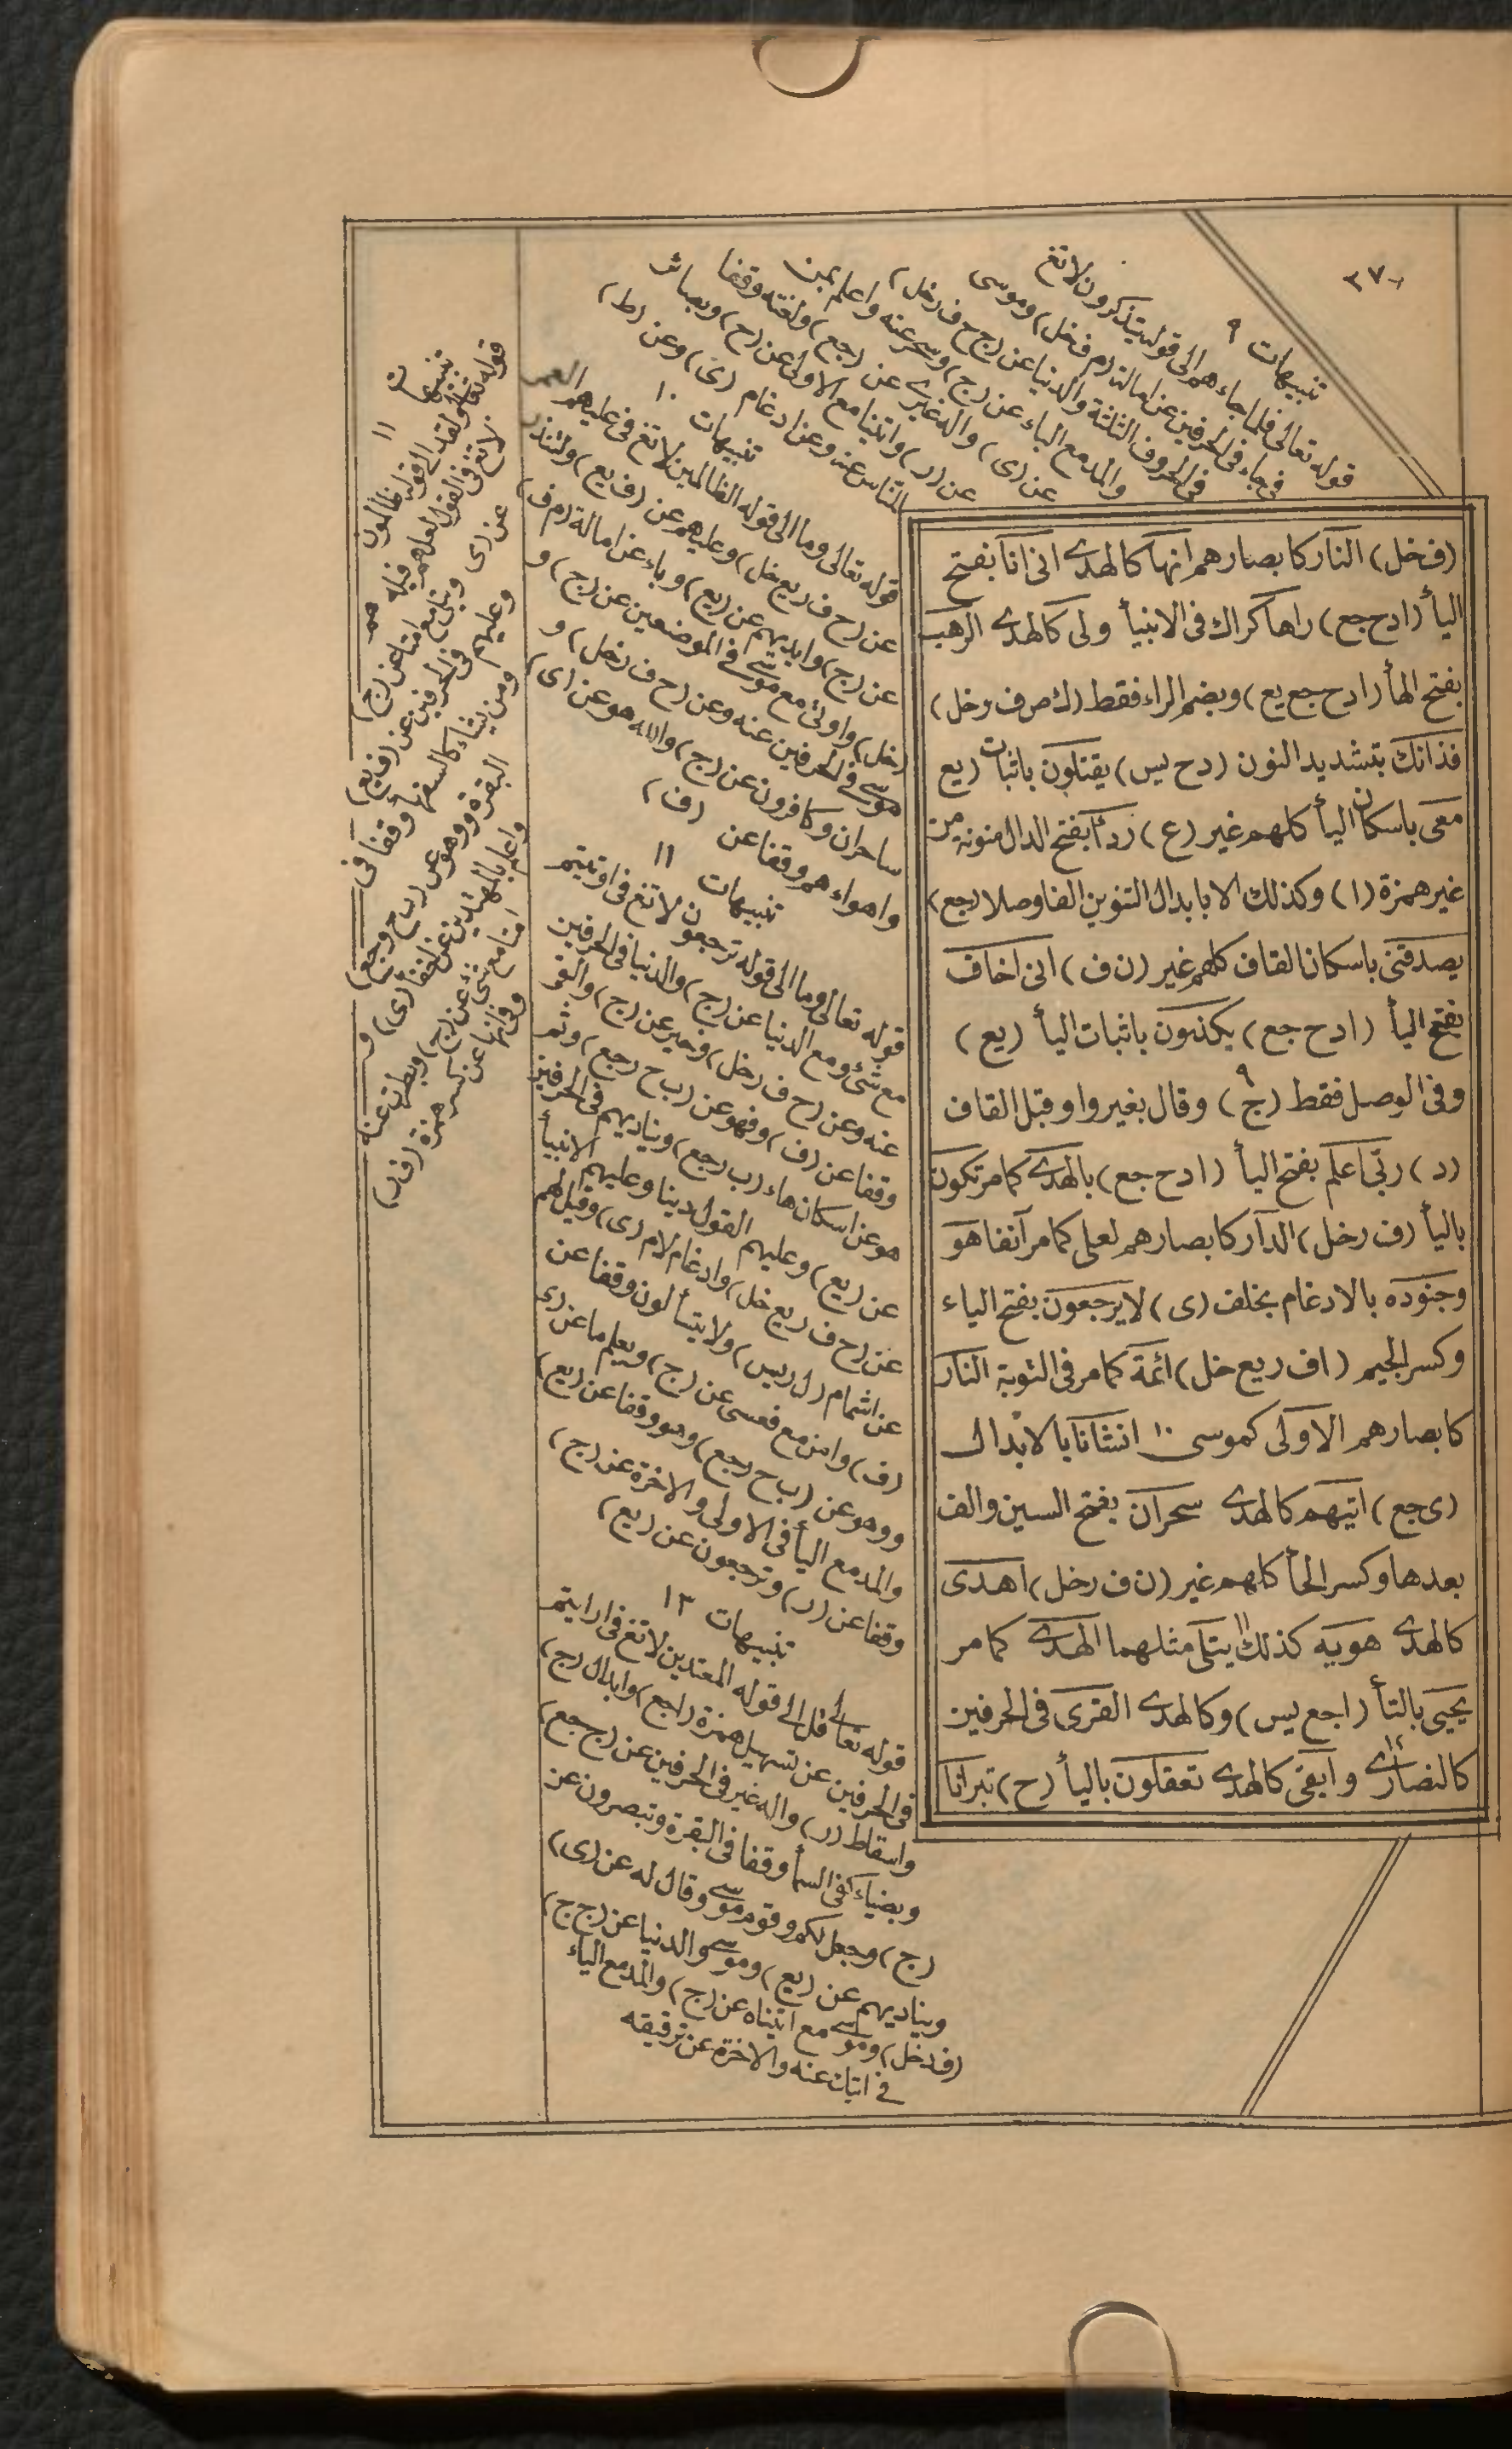 ٣٧٠
(ف خل) النار كابصارهم انها كالهدى انى انا بفتح
اليأ (ا د ح جع) راها كراك فى الانبيأ ولى كالهدى الرهب
بفتح الهأ (ا د ح جع يع) وبضم الراء فقط (ك ص ف ر خل)
فذانك بتشديد النون (د ح يس) يقتلون باثبات (يع
معى باسكان اليأ كلهم غير (ع) ردءا بفتح الدال منونه من
غير همزة (ا) وكذلك الا بابدال التنوين الفا وصلا (جع)
يصدقنى باسكان القاف كلهم غير (ن ف) انى اخاف
بفتح اليأ (ا د ح جع) يكذبون باثبات اليأ (يع)
وفى الوصل فقط (ج) ٩ وقال بغير واو قبل القاف
(د) ربى اعلم بفتح اليأ (ا د ح جع) بالهدى كما مر تكون
باليأ (ف ر خل) الدار كابصارهم لعلى كما مر آنفا هو
وجنوده بالادغام بخلف (ى) لا يرجعون بفتح الياء
وكسر الجيم (ا ف ر يع خل) ائمة كما مر فى التوبة النار
كابصارهم الاولى كموسى ١٠ انشانا بالابدال
(ى جع) اتيهم كالهدى سحران بفتح السين والف
بعدها وكسر الحأ كلهم غير (ن ف ر خل) اهدى
كالهدى هويه كذلك ١١ يتلى مثلهما الهدى كما مر
يجبى بالتأ (ا جع يس) وكالهدى القرى فى الحرفين
كالنصارى ١٢ وابقى كالهدى تعقلون باليأ (ح) تبرانا
تنبيهات ٩
قوله تعالى فلما جاءهم الى قوله يتذكرون لا تغ
فى جاء فى الحرفين عن امالته (م ف خل) وموسى
فى الحروف الثلثة والدنيا عن (ج ح ف ر خل)
والمد مع الباء عن (ج) وسحر عنه واعلم بمن
عن (ى) واله غيرى عن (جع) ولعنه وقفا
عن (ر) واتينا مع الاولى عن (ح) وبصائر
للناس عنه وعن ادغام (ى) وعن (ط)
تنبيهات ١٠
قوله تعالى وما الى قوله الظالمين لا تغ فى عليهم العمر
عن (ح ف ر يع خل) وعليهم عن (ف يع) ولتنذر
عن (ج) وايديهم عن (يع) وجاء عن امالة (م ف
خل) واوتى مع موسى فى الموضعين عن (ج) و
موسى فى الحرفين عنه وعن (ح ف ر خل) و
ساحران وكافرون عن (ج) والله هو عن (ى)
واهواءهم وقفا عن (ف)
تنبيهات ١١
قوله تعالى وما الى قوله ترجعون لا تغ فى اوتيتم
مع شئ ومع الدنيا عن (ج) والدنيا فى الحرفين
عنه وعن (ح ف ر خل) وخير عن (ج) والقر
وقفا عن (ف) وفهو عن (ب ح ر جع) وثم
هو عن اسكان هاء (ب ر جع) ويناديهم فى الحرفين
عن (يع) وعليهم القول ربنا وعليهم الانبيأ
عن (ح ف ر يع خل) وادغام لام (ى) وقيل لهم
عن اشمام (ل ر يس) ولا يتسألون وقفا عن
(ف) وامن مع فعسى عن (ج) ويعلم ما عن (ى
ووهو عن (ب ح ر جع) وهو وقفا عن (يع)
والمد مع اليأ فى الاولى والاخرة عن (ج)
وقفا عن (ر) وترجعون عن (يع)
تنبيهات ١٢
قوله تعالى قل الى قوله المعتدين لا تغ فى ارايتم
فى الحرفين عن تسهيل همزة (ا جع) وابدال (ج)
واسقاط (ر) واله غير فى الحرفين عن (ج جع)
وبضياء كفى السمأ وقفا فى البقرة وتبصرون عن
(ج) وجعل لكم وقوم موسى وقال له عن (ى)
ويناديهم عن (يع) وموسى والدنيا عن (ج ح)
(ف ر خل) وموسى مع اتيناه عن (ج) والمد مع الياء
فى اتيان عنه والاخرة عن ترقيقه
تنبيهات
١١
قوله تعالى ولقد الى قوله ظالمون
لا تغ فى القول لعلهم قبله هم
عن (ى) ويتلى مع امنا عن (ج)
وعليهم فى الحرفين عن (ف يع)
ومن يشاء كالسفهأ وقفا فى
البقرة ووهو عن (ب ح ر جع)
واعلم بالمهتدين عن اخفا (ى) و
امنا مع شئ عن (ج) وبطرت عنه
وفى امها عن كسر همزة (ف ر)